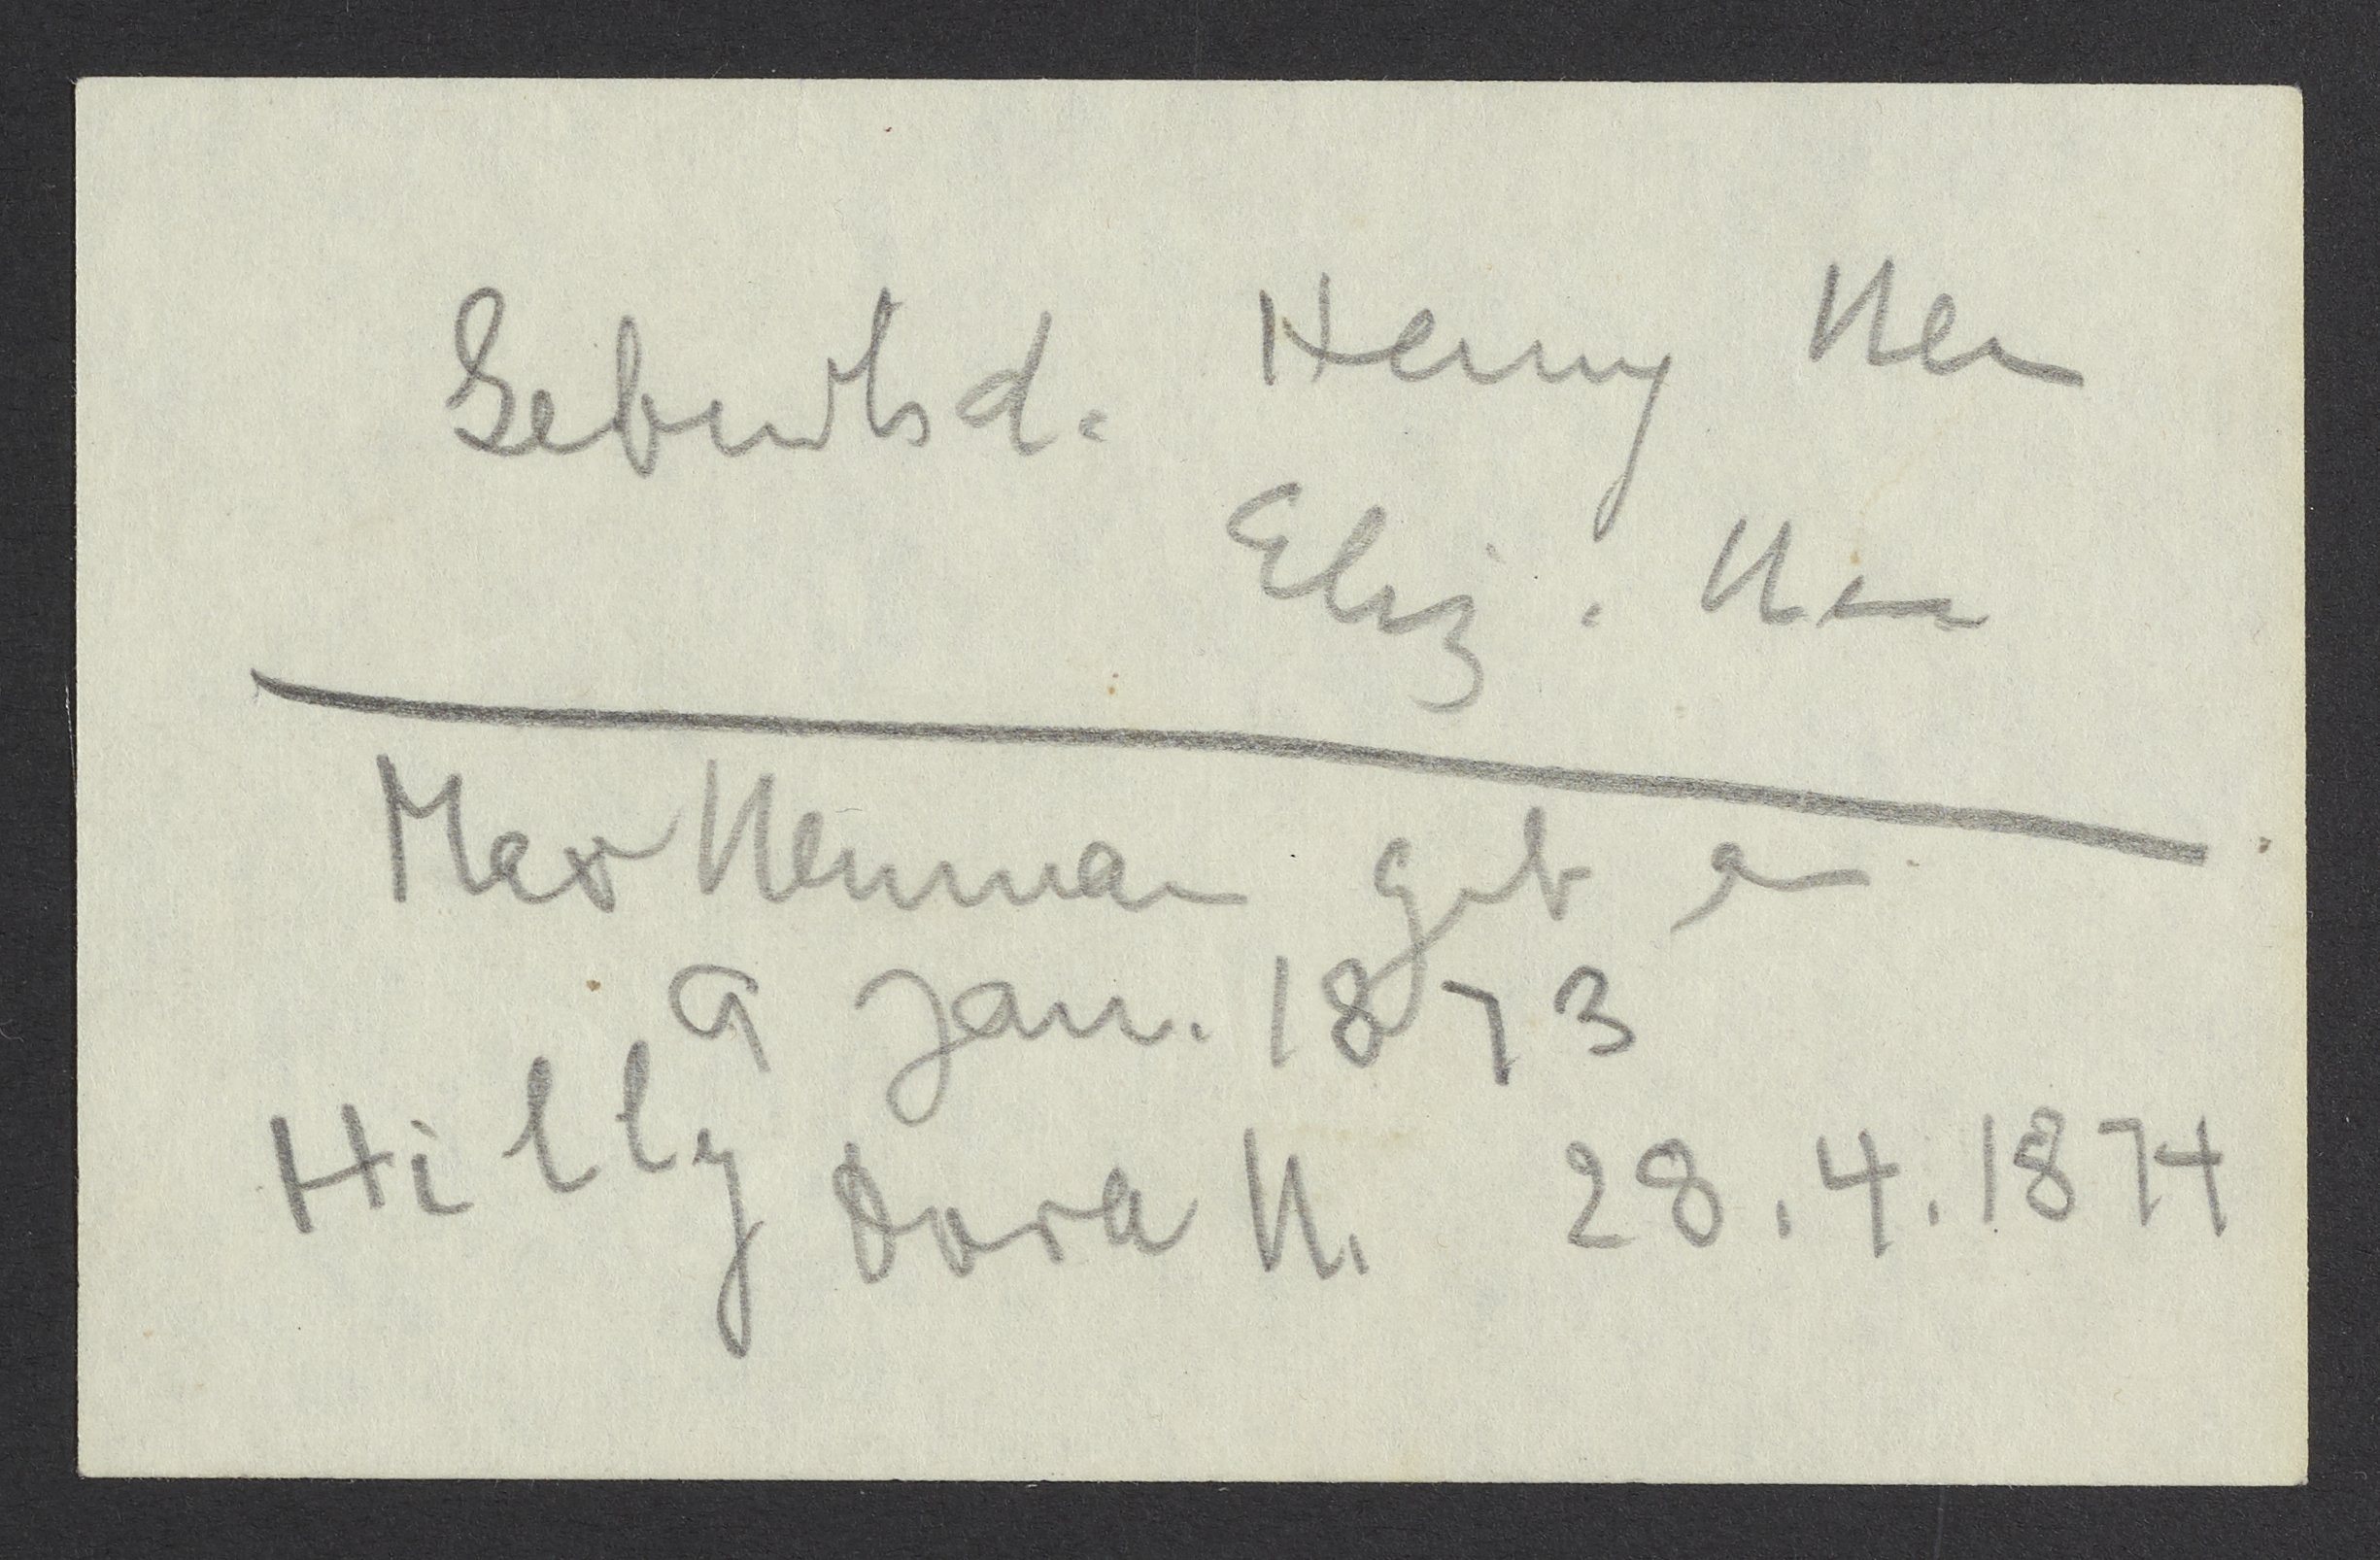 Geburtsd. Henny Neu
Eliz. Neu
Max Neuman geb am
9 Jan. 1873
Hilly Dora N. 28.4.1874